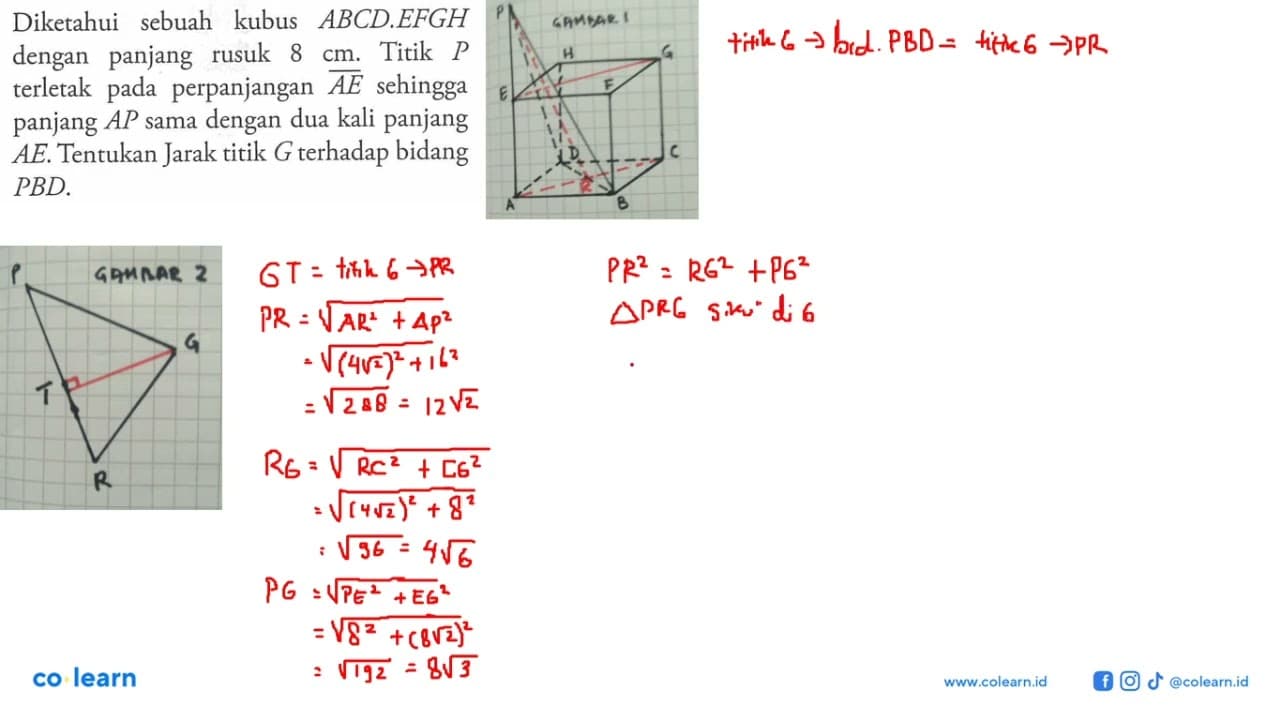 Diketahui sebuah kubus ABCD.EFGH
dengan panjang rusuk 8 cm. Titik P
terletak pada perpanjangan A̅E̅ sehingga
panjang AP sama dengan dua kali panjang
AE. Tentukan Jarak titik G terhadap bidang
PBD.
P
GAMBAR 1
H
G
E
F
D
C
R
A
B
titik G → bid. PBD = titik G → PR
P
GAMBAR 2
G
T
R
GT = titik G → PR
PR = √AR² + AP²
= √(4√2)² + 16²
= √288 = 12√2
RG = √RC² + CG²
= √(4√2)² + 8²
: √96 = 4√6
PG = √PE² + EG²
= √8² + (8√2)²
= √192 = 8√3
PR² = RG² + PG²
△PRG siku² di G
co learn
www.colearn.id
@colearn.id